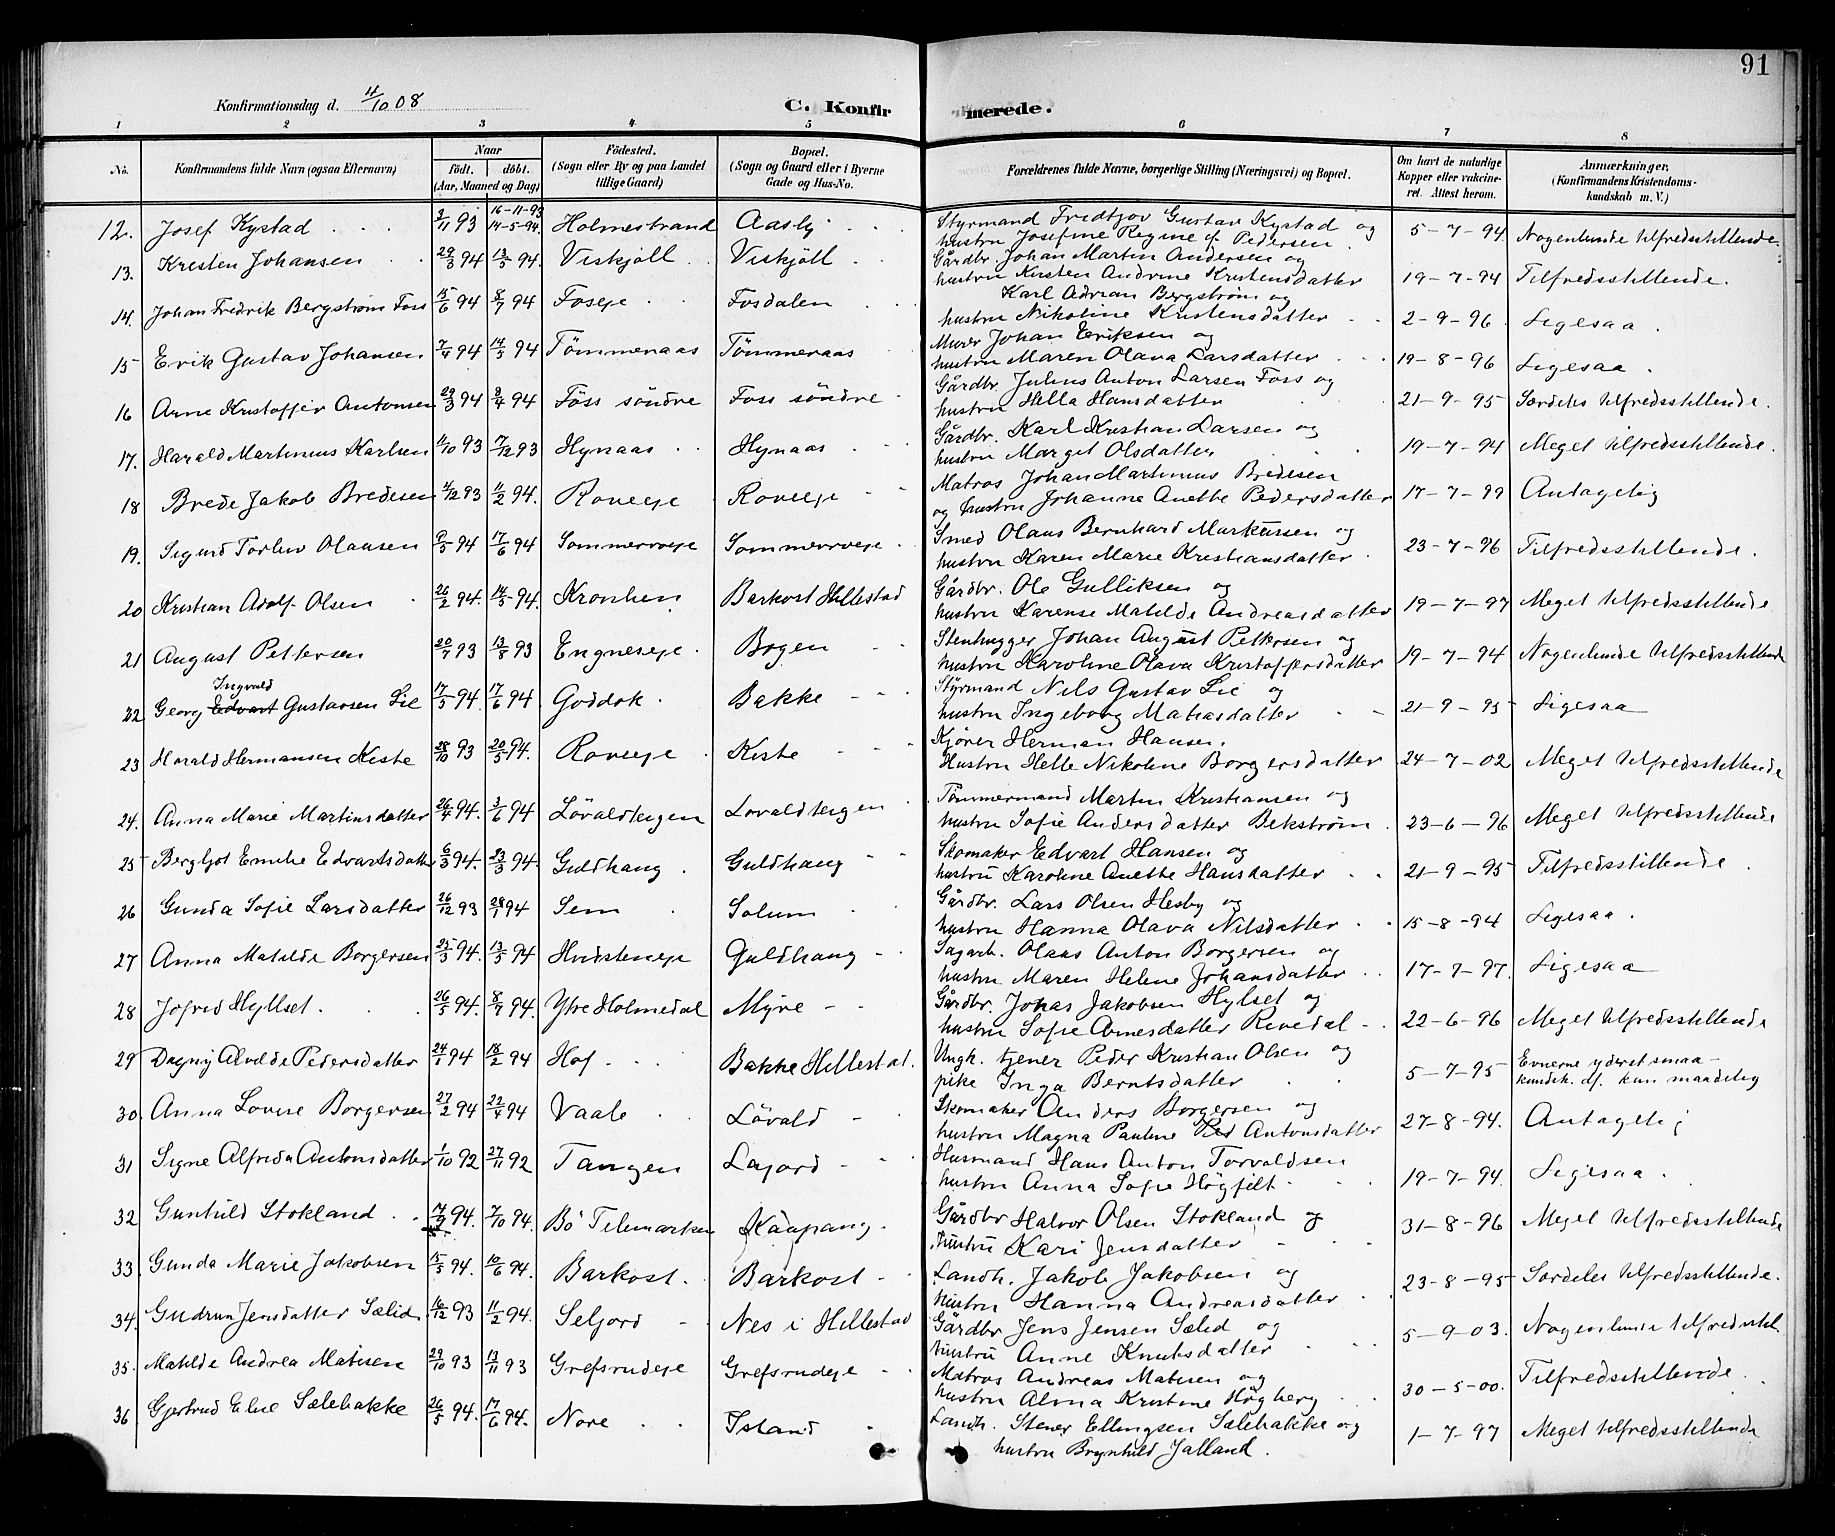 91
Konfirmationsdag d. 4/10 08
C. Konfirmerede.
1 2 3 4 5 6 7 8
No. Konfirmandens fulde Navn (ogsaa Efternavn) Naar födt. döbt. (Aar, Maaned og Dag) Födested. (Sogn eller By og paa Landet tillige Gaard) Bopæl. (Sogn og Gaard eller i Byerne Gade og Hus-No. Forældrenes fulde Navne, borgerlige Stilling (Næringsvei) og Bopæl. Om havt de naturlige Kopper eller vaccineret. Attest herom. Anmærkninger, (Konfirmandens Kristendomskundskab m. V.)
12. Josef Kystad 3/11 93 16-11-93 14-5-94. Holmestrand Aasly Styrmand Fredtjov Gustav Kystad og
hustru Josefine Regine f. Pedersen. 5-7-94. Nogenlunde tilfredsstillende.
13. Kresten Johansen 29/3 94 13/5 94. Viskjöll Viskjöll Gårdbr. Johan Martin Andersen og
hustru Kristen Andrine Kristensdatter 19-7-94 Tilfredsstillende.
14. Johan Fredrik Bergstrøm Foss 15/6 94 8/7 94 Foseje Fosdalen Karl Adrian Bergstrøm og
hustru Nikoline Kristensdatter 2-9-96. Ligesaa.
15 Erik Gustav Johansen 7/4 94 14/5 94 Tømmeraas Tømmeraas Murer Johan Eriksen og
hustru Maren Olava Larsdatter 19-8-96 Ligesaa.
16 Arne Kristoffer Antonsen 29/3 94 3/4 94 Foss söndre Foss söndre Gårdbr. Julius Anton Larsen Foss og
hustru Hella Hansdatter 21-9-95 Særdeles tilfredsstillende.
17. Harald Martinius Karlsen 11/10 93 7/12 93 Hynaas Hynaas Gårdbr. Karl Kristian Larsen og
hustru Marget Olsdatter 19-7-94 Meget tilfredsstillende.
18 Brede Jakob Bredesen 11/12 93 11/2 94. Roveeje Roveeje Matros Johan Martinius Bredesen
og hustru Johanne Anette Pedersdatter 17-7-99 Antagelig
19. Sigurd Torlev Olausen 9/5 94 17/6 94 Sommerroeje Sommerroeje Smed Olaus Bernhard Markussen og
hustru Karen Marie Kristiansdatter 23-7-96 Tilfredsstillende.
20 Kristian Adolf Olsen 26/2 94. 14/5 94. Kronlien Barkost Hillestad Gårdbr. Ole Gulliksen og
hustru Karense Matilde Andreasdatter 19-7-97 Meget tilfredsstillende
21 August Pettersen 20/7 93 13/8 93 Engneseje Bogen Stenhugger Johan August Pettersen og
hustru Karoline Olava Kristoffersdatter 19-7-94 Nogenlunde tilfredsstillende
Ingvald
22 Georg Edvart Gustavsen Lie 17/5 94. 17/6 94 Goddok Bakke Styrmand Nils Gustav Lie og
hustru Ingeborg Matiasdatter 21-9-95 Ligesaa
23 Harald Hermansen Kiste 28/10 93 20/5 94. Roveeje Kiste Kjører Herman Hansen,
Hustru Helle Nikoline Borgersdatter 24-7-02 Meget tilfredsstillende
24. Anna Marie Martinsdatter 26/4 94. 3/6 94 Lövaldteigen Lovaldteigen Tömmermand Martin Kristiansen og
hustru Sofie Andersdatter Bekstrøm 23-6-96 Meget tilfredsstillende
25 Bergljot Emilie Edvartsdatter 6/3 94. 23/3 94. Guldhaug Guldhaug Skomaker Edvart Hansen og
hustru Karoline Anette Hansdatter 21-9-95 Tilfredsstillende
26 Gunda Sofie Larsdatter 26/12 93 28/1 94 Sem Solum Gårdbr. Lars Olsen Hesby og
hustru Hanna Olava Nilsdatter 15-8-94 Ligesaa.
27 Anna Matilde Borgersen 25/3 94. 13/5 94 Hvitsteneje Guldhaug Sagarb. Olaus Anton Borgersen og
hustru Maren Helene Johansdatter 17-7-97. Ligesaa
28 Jofred Hyllset 26/5 94. 8/7 94. Ytre Holmedal Myre Gårdbr. Johas Jakobsen Hylset og
hustru Sofie Arnesdatter Rivedal 22-6-96 Meget tilfredsstillende
29 Dagny Alvilde Pedersdatter 24/1 94 18/2 94 Hof Bakke Hillestad. Ungk. tjener Peder Kristian Olsen og
pike Inga Berntsdatter 5-7-95 Evnerne yderst smaa-
kundsk. df. kun maadelig
30. Anna Lovise Borgersen 27/2 94 22/4 94 Vaale Lövald Skomaker Anders Borgersen og
hustru Magna Pauline Ped Antonsdatter 27-8-94. Antagelig
31 Signe Alfreda Antonsdatter 1/10 92 27/11 92 Tangen Lajord Husmand Hans Anton Torvaldsen
hustru Anna Sofie Högfelt 19-7-94. Ligesaa.
32 Gunhild Stokland 14/9 94. 7/10 94. Bö Telemarken Kaapang Gårdbr Halvor Olsen Stokland og
hustru Kari Jensdatter 31-8-96 Meget tilfredsstillende
33. Gunda Marie Jakobsen 15/5 94. 10/6 94. Barkost. Barkost Landh. Jakob Jakobsen og
hustru Hanna Andreasdatter 23-8-95 Særdeles tilfredsstillende.
34. Gudrun Jensdatter Sælid 16/12 93 11/2 94. Seljord Nes i Hillestad Gårdbr Jens Jensen Sælid og
hustru Anne Knutsdatter 5-9-03. Nogenlunde tilfredsstil.
35. Matilde Andrea Matisen 29/10 93 13/11 93 Grefsrudeje Grefsrudeje Matros Andreas Matisen og
hustru Alma Kristine Högberg 30-5-00. Tilfredsstillende.
36 Gjertrud Elise Sælebakke 26/5 94. 17/6 94. Nore Island Landh. Stener Ellingsen Sælebakke og
hustru Brynhild Jalland. 1-7-97 Meget tilfredsstillende